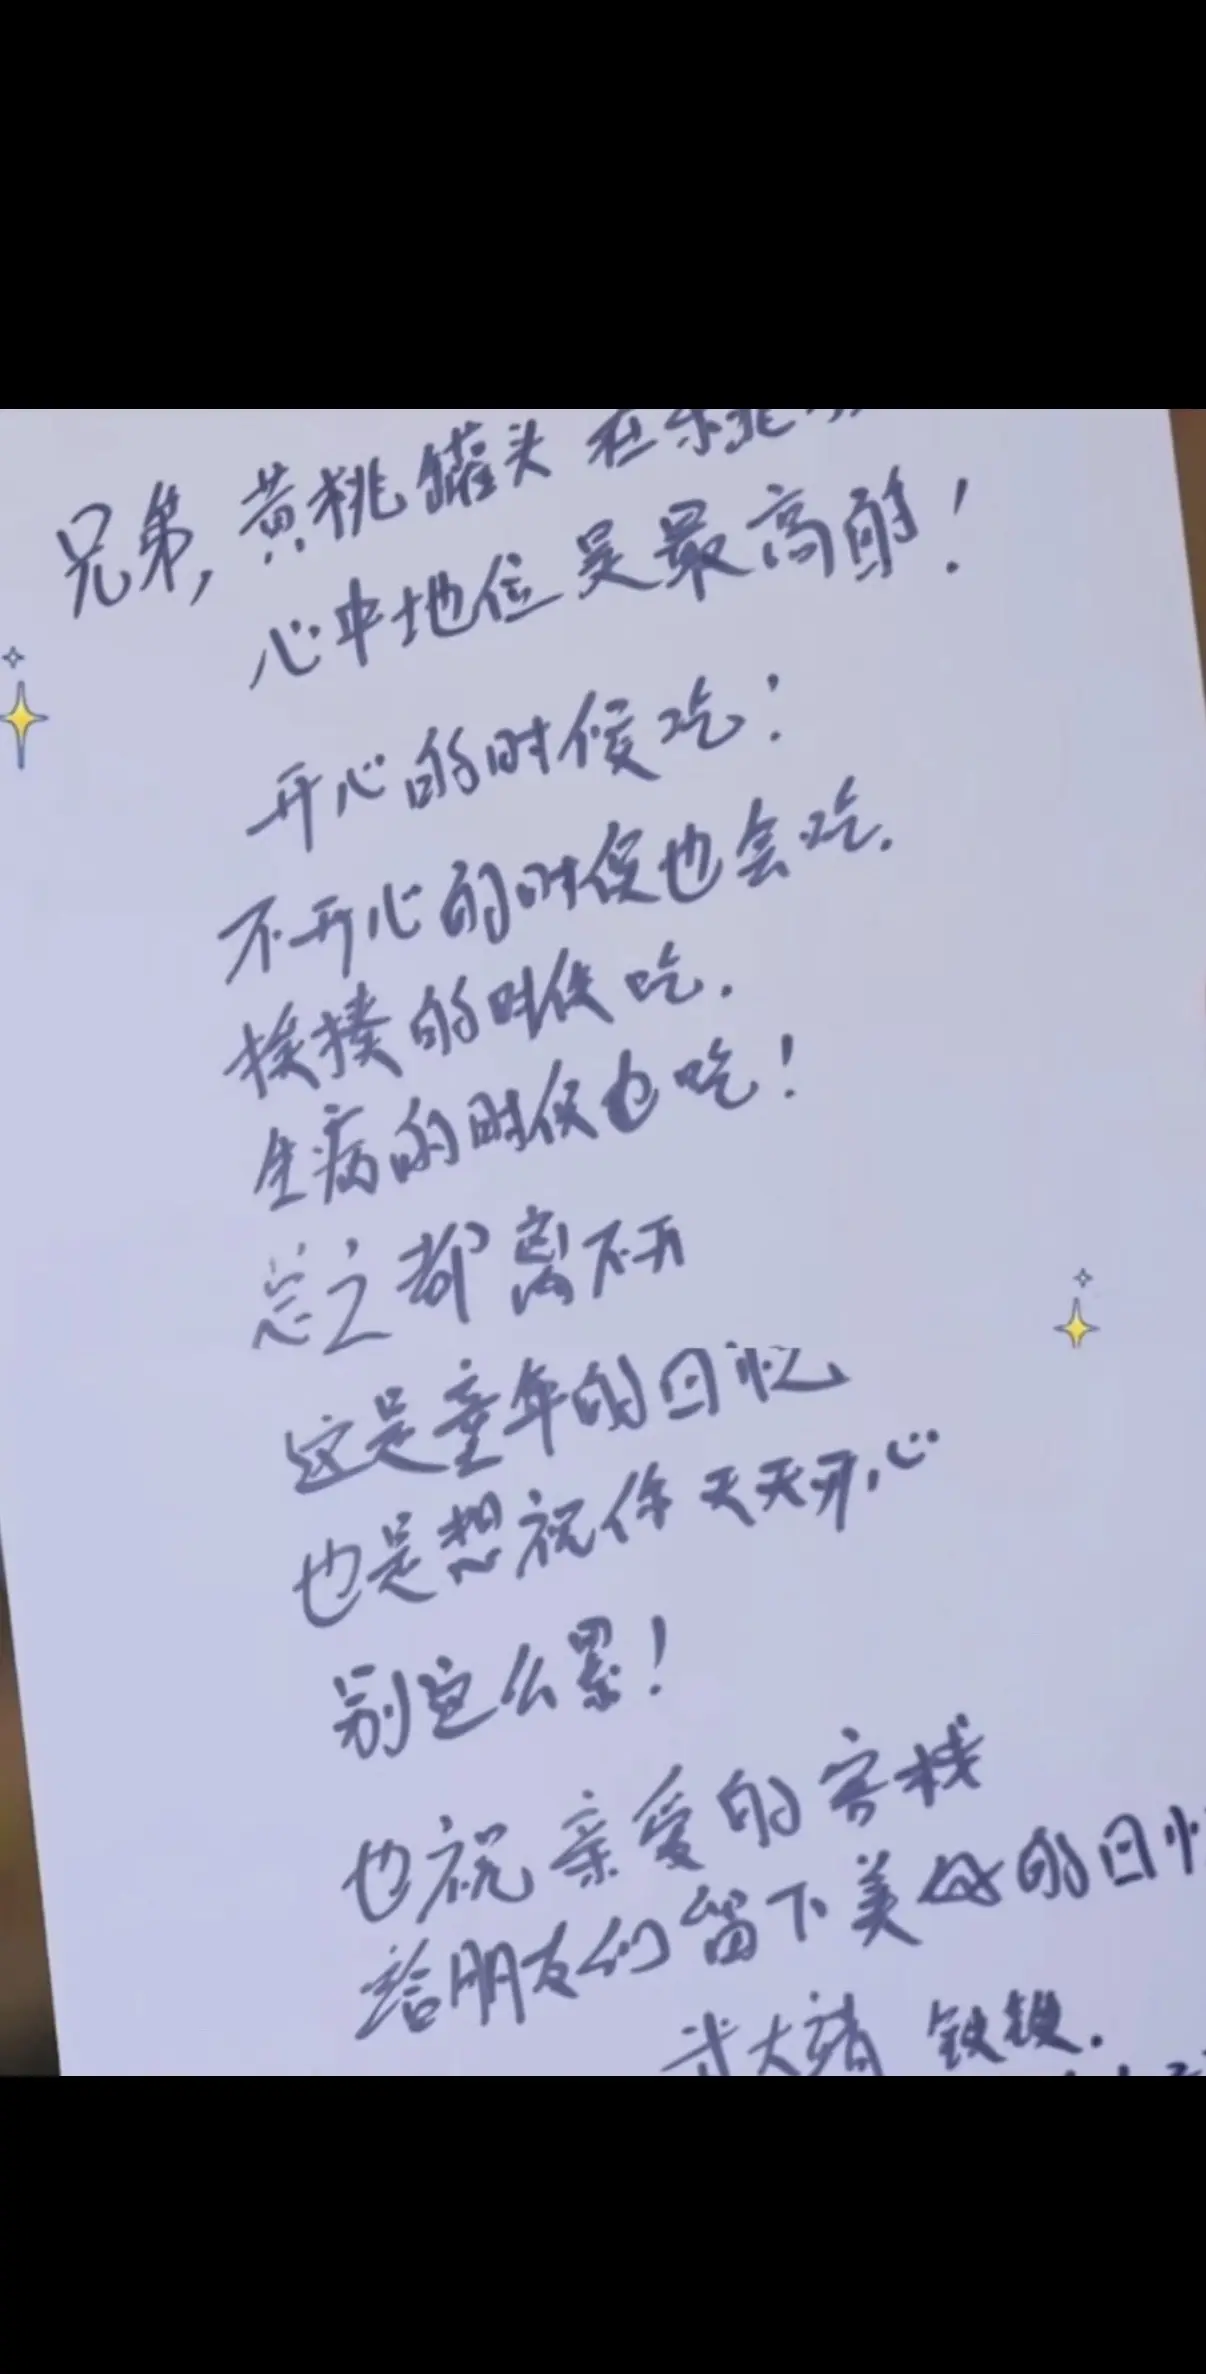 兄弟, 黄桃罐头 在东北
心中地位是最高的!
开心的时候吃!
不开心的时候也会吃.
挨揍的时候吃.
生病的时候也吃!
总之都离不开
这是童年的回忆
也是想祝你天天开心
别这么累!
也祝亲爱的客栈
给朋友们留下美好的回忆
武大靖 铁铁.